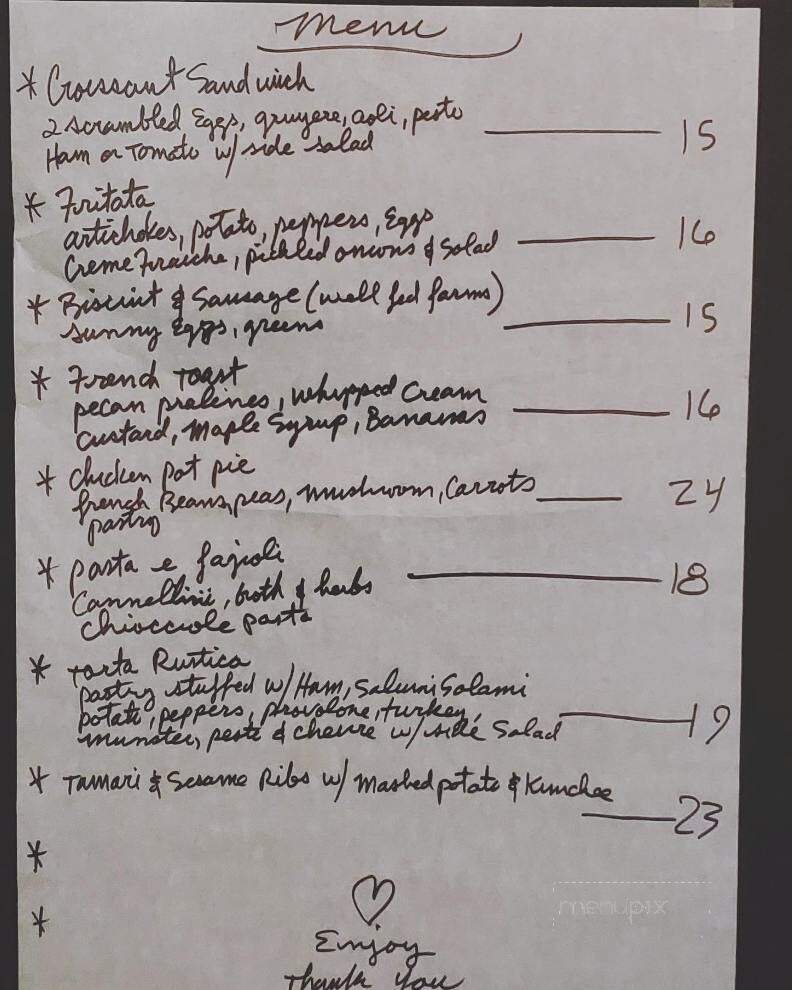 Menu
* Croissant Sandwich
2 scrambled Eggs, gruyere, aoli, pesto
Ham or Tomato w/ side salad
15
* Fritata
artichokes, potato, peppers, Eggs
Creme Fraiche, pickled onions & salad
16
* Biscuit & Sausage (well fed farms)
sunny Eggs, greens
15
* French Toast
pecan pralines, whipped Cream
Custard, Maple Syrup, Bananas
16
* chicken pot pie
french Beans, peas, mushroom, Carrots
24
pastry
* pasta e fagioli
Cannellini, broth & herbs
18
Chiocciole pasta
* Torta Rustica
pastry stuffed w/ Ham, Salumi Salami
potato, peppers, provolone, turkey,
munster, pesto & chevre w/ side Salad
19
* Tamari & Sesame Ribs w/ Mashed potato & Kimchee
23
*
*
♡
Enjoy
Thank You
menupix